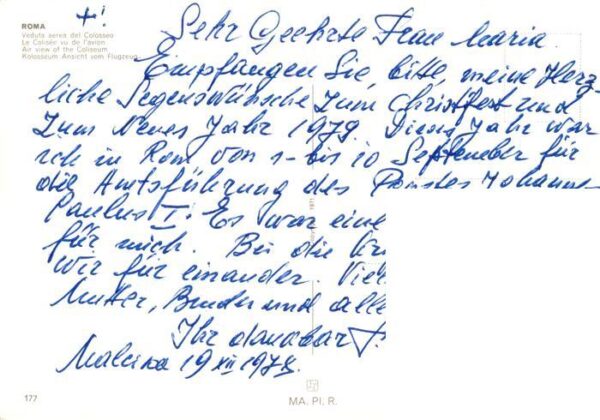 +!
ROMA
Veduta aerea del Colosseo
Le Colisée vu de l'avion
Air view of the Coliseum
Kolosseum Ansicht vom Flugzeug
Sehr Geehrte Frau Maria.
Empfangen Sie, bitte, meine Herz-
liche Segenswünsche zum Christfest und
zum Neues Jahr 1979. Dieses Jahr war
ich in Rom von 1- bis 10 September für
die Amtsführung des Papstes Johannes
Paulus I! Es war eine
für mich. Bei die
wir für einander. Viel
Mutter, Bruder und alle
Ihr dankbar
19 XII 1978.
177
MA. PI. R.